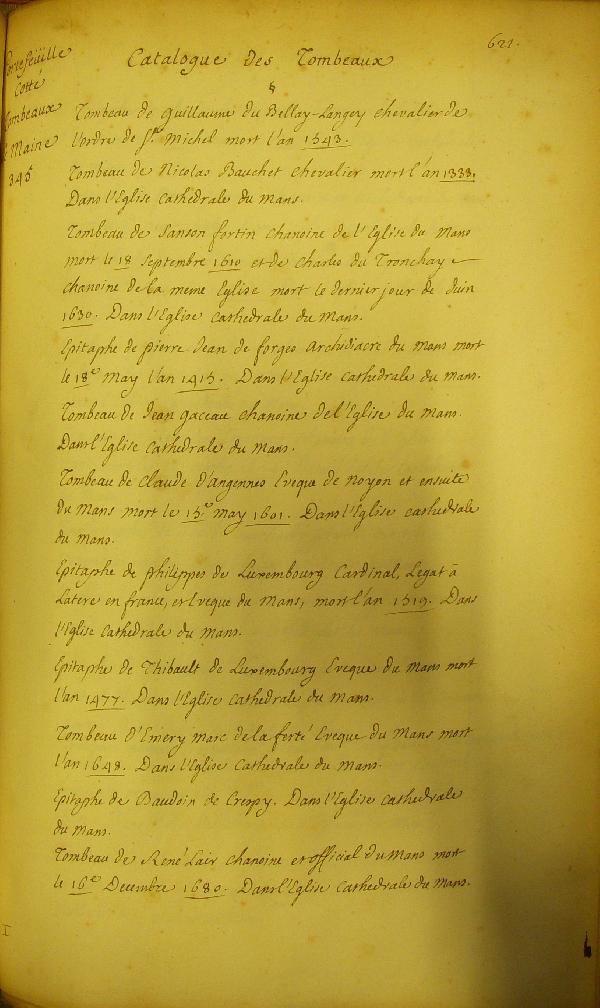 621.
Portefeüille
Cotté
Tombeaux
Maine
Catalogue des Tombeaux
§
Tombeau de Guillaume du Bellay-Langey chevalier de
l'ordre de St. Michel mort l'an 1543.
Tombeau de Nicolas Bauchet chevalier mort l'an 1333.
Dans l'Eglise cathedrale du Mans.
Tombeau de Sanson fortin chanoine de l'Eglise du Mans
mort le 18 Septembre 1610 et de Charles du Tronchay
chanoine de la meme Eglise mort le dernier jour de Juin
1630. Dans l'Eglise cathedrale du Mans.
Epitaphe de pierre Jean de forges Archidiacre du mans mort
le 18e May l'an 1415. Dans l'Eglise cathedrale du mans.
Tombeau de Jean gaceau chanoine de l'Eglise du mans.
Dans l'Eglise cathedrale du Mans.
Tombeau de Claude d'angennes Eveque de noyon et ensuite
du Mans mort le 15e may 1601. Dans l'Eglise cathedrale
du Mans.
Epitaphe de philippes de Luxembourg Cardinal, Legat à
Latere en france, et Eveque du Mans, mort l'an 1519. Dans
l'Eglise cathedrale du mans.
Epitaphe de Thibault de Luxembourg Eveque du Mans mort
l'an 1477. Dans l'Eglise cathedrale du Mans.
Tombeau d'Emery marc de la ferté Eveque du Mans mort
l'an 1648. Dans l'Eglise Cathedrale du mans.
Epitaphe de Baudoin de Crespy. Dans l'Eglise cathedrale
du mans.
Tombeau de René Lair chanoine et official du Mans mort
le 16e Decembre 1680. Dans l'Eglise cathedrale du Mans.